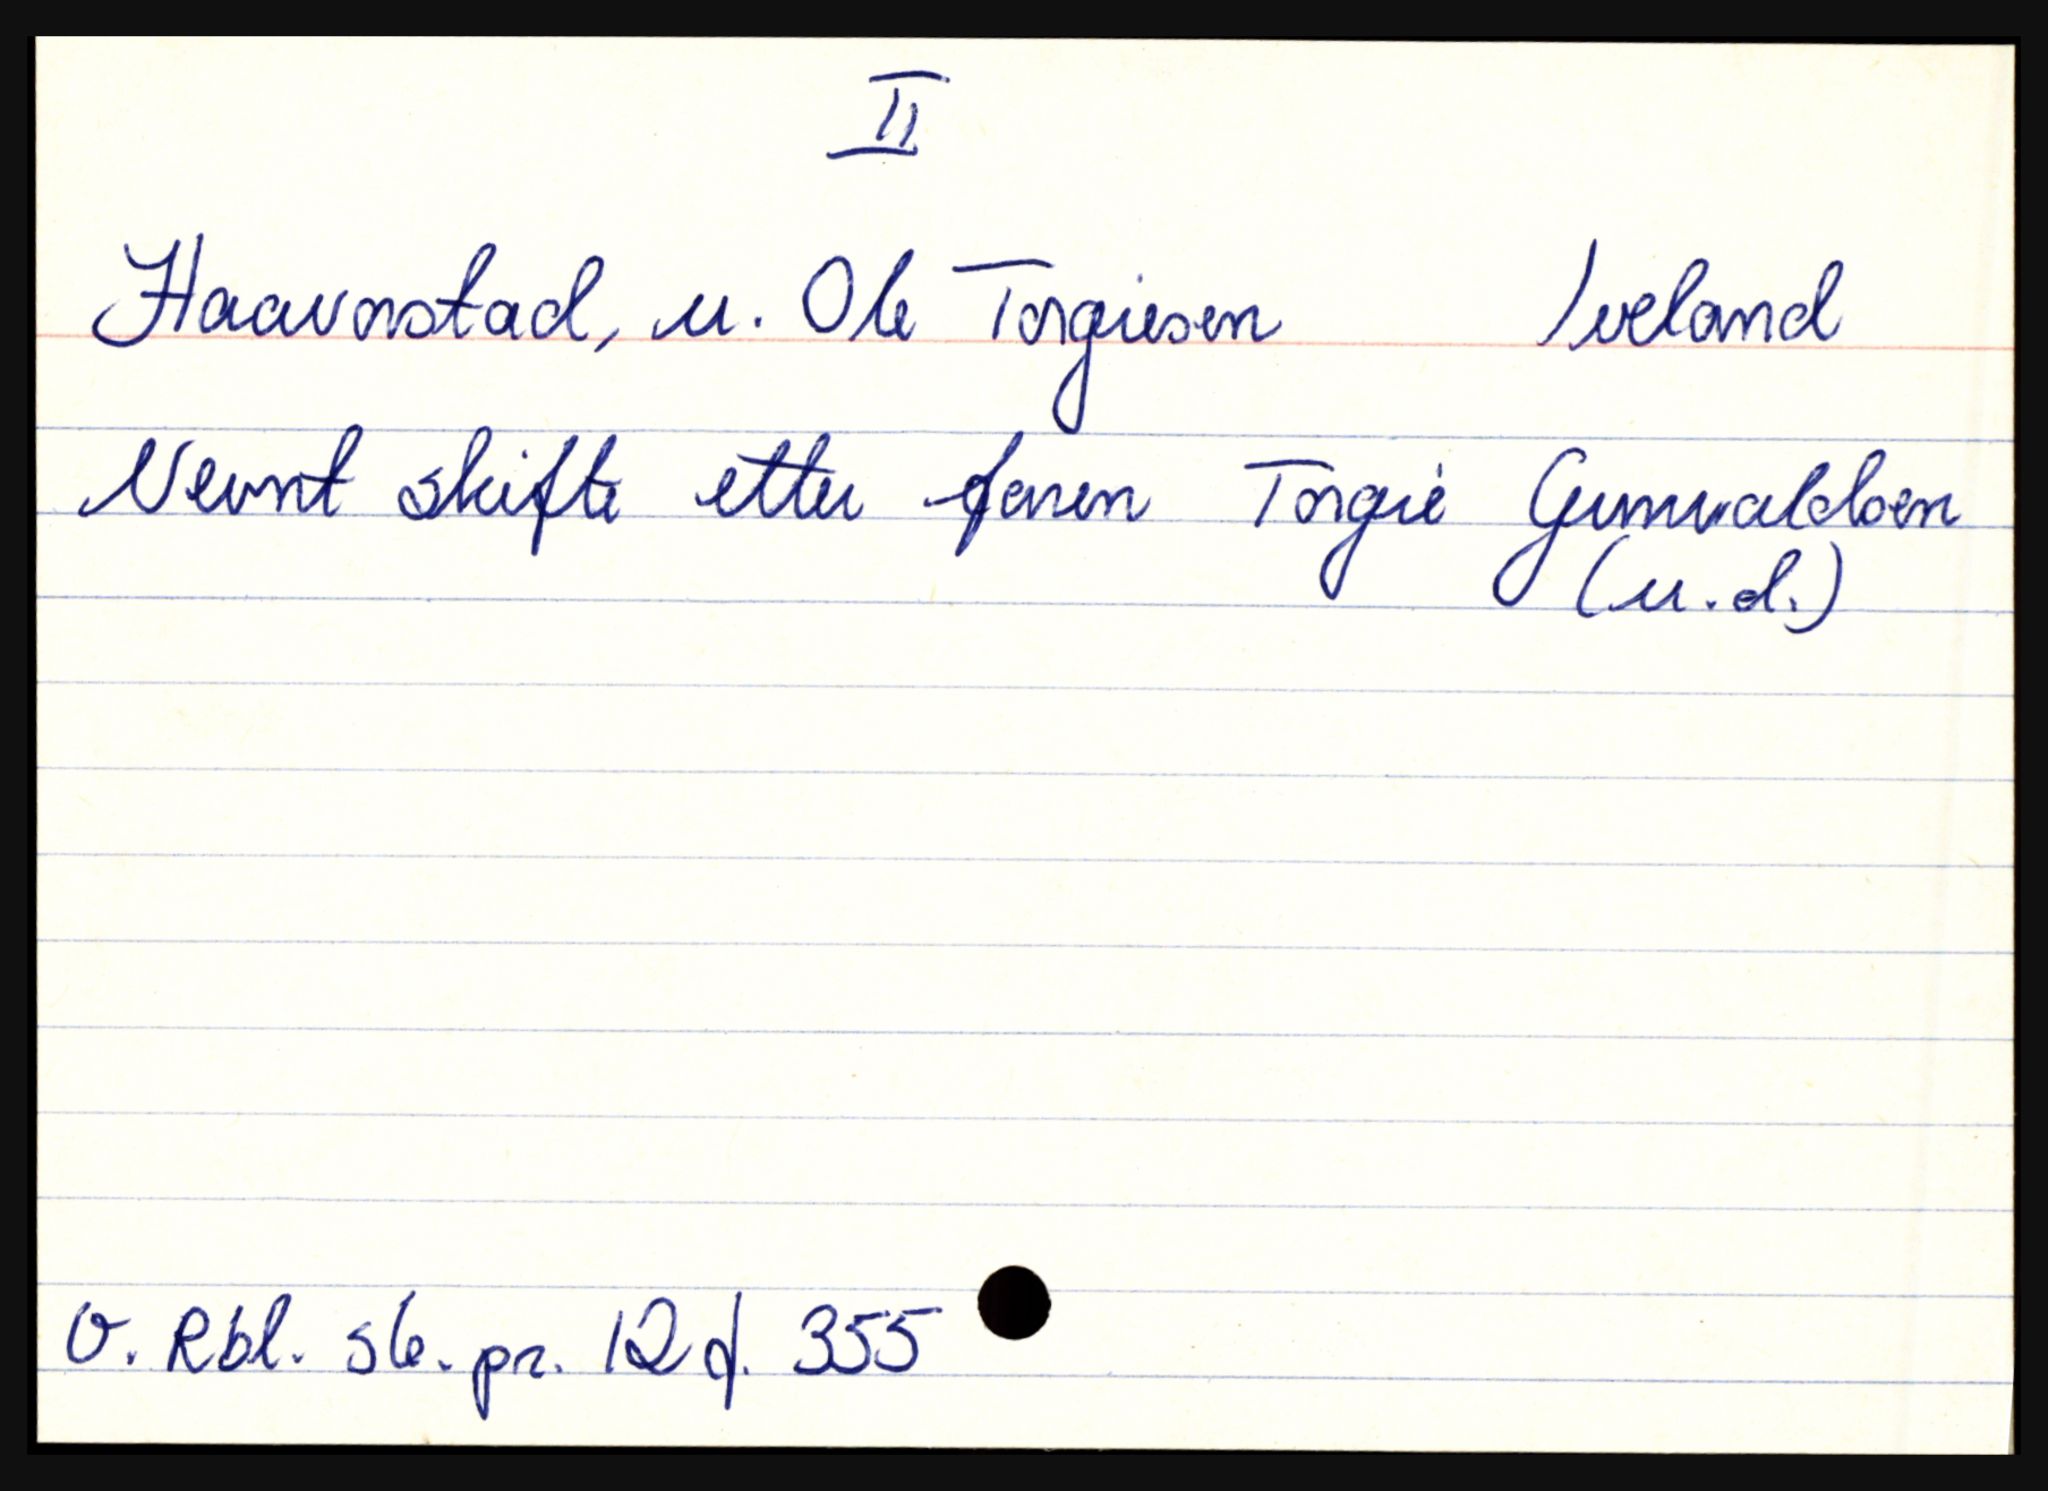 II
Haavorstad, u. Ole Torgiesen Iveland
Nevnt skifte etter faren Torgie Gunvaldsen
(u.d.)
O. Rbl. sk. pr. 12 f. 355